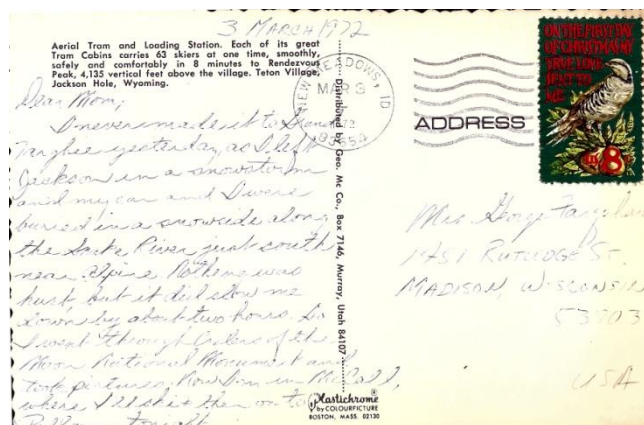 3 MARCH 1972
Aerial Tram and Loading Station. Each of its great
Tram Cabins carries 63 skiers at one time, smoothly,
safely and comfortably in 8 minutes to Rendezvous
Peak, 4,135 vertical feet above the village. Teton Village,
Jackson Hole, Wyoming.
Dear Mom,
I never made it to Grand
Targhee yesterday, as I left
Jackson in a snowstorm
and my car and I were
buried in a snowslide along
the Snake River just south
near Alpine. Nothing was
hurt, but it did slow me
down by about two hours. So
I went through Craters of the
Moon National Monument and
took pictures. Now I'm in McCall,
where I'll ski then on to
tonight
Distributed by Geo. Mc Co., Box 7146, Murray, Utah 84107
Plastichrome
by COLOURPICTURE
BOSTON, MASS. 02130
NEW MEADOWS, ID
MAR 3
83654
ADDRESS
ON THE FIRST DAY
OF CHRISTMAS MY
TRUE LOVE
SENT TO
ME
US 8
Mrs. George
1451 RUTLEDGE ST.
MADISON, WISCONSIN
53703
USA